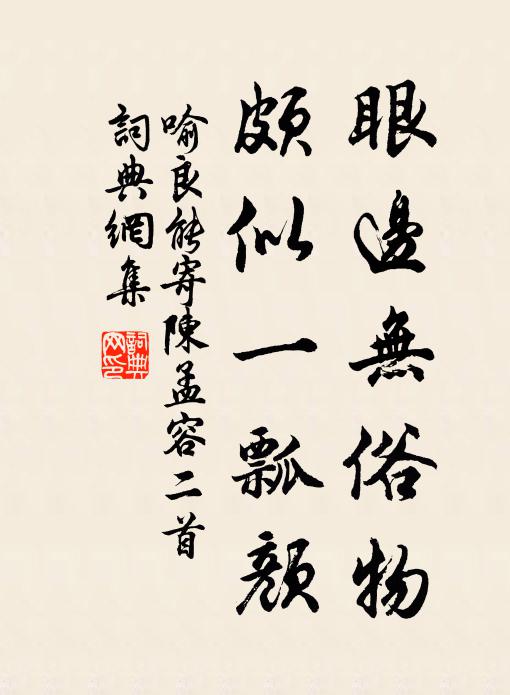 眼邊無俗物
頗似一瓢顏
喻良能寄陳孟容二首
詞典網集
詞典網印